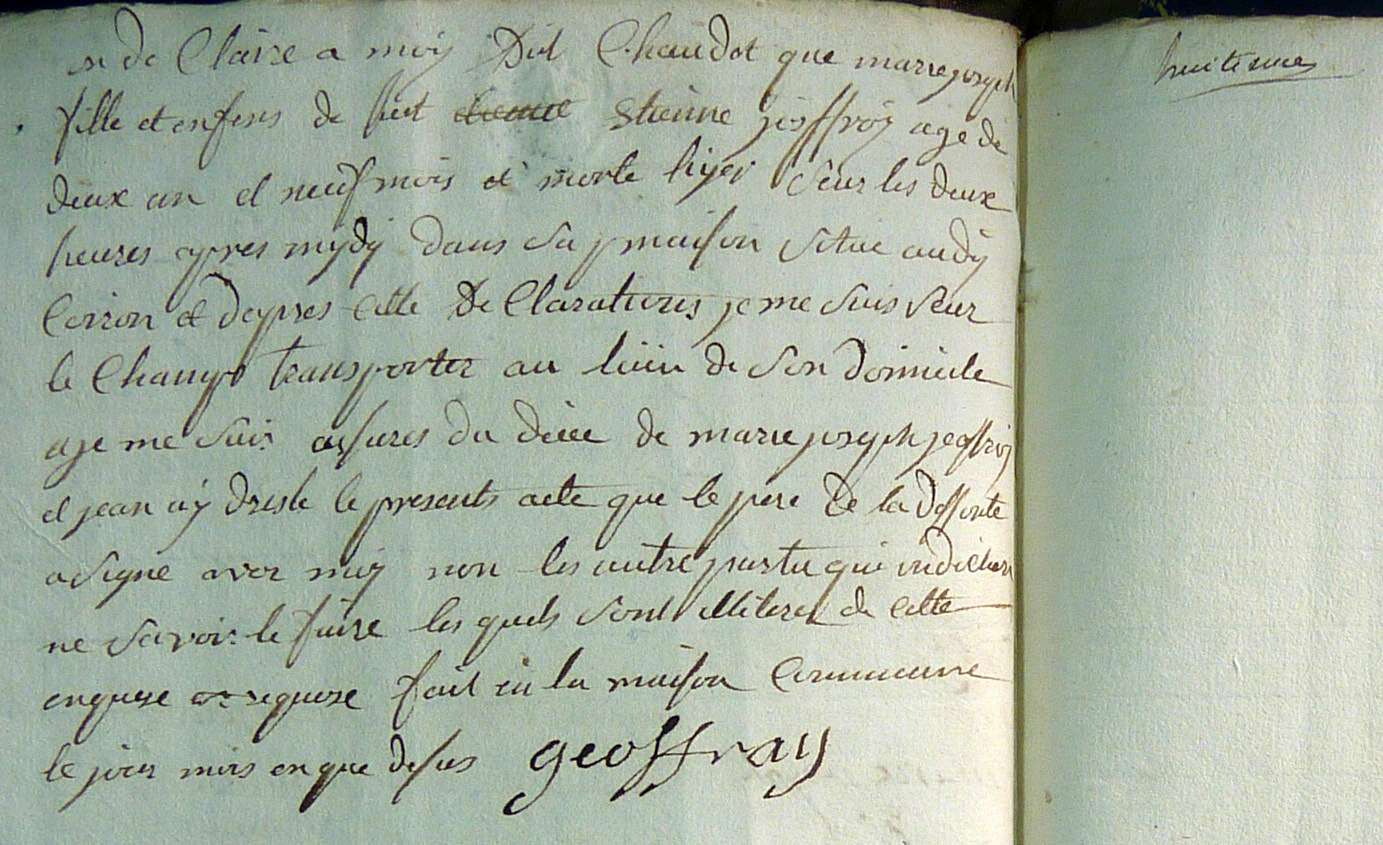 on de Claire a moy Dit Chaudot que marie joseph
fille et enfens de Etienne jeoffroy age de
deux an et neuf mois et morte hyer Seur les deux
heures apres mydy dans sa maison situe audy
Corron et dapres cette De Claratures je me suis seur
le Champs transporter au liui de son domicile
a je me suis assures du dece de marie joseph jeoffroy
et jean ay dresse le presents acte que le pere de la deffonte
a signe avec moy non les autre partie qui on declare
ne savoir le faire les quels sont illiterez de cette
enquere requere fait en la maison Commeune
le jour mois en que desus geoffray
huitieme